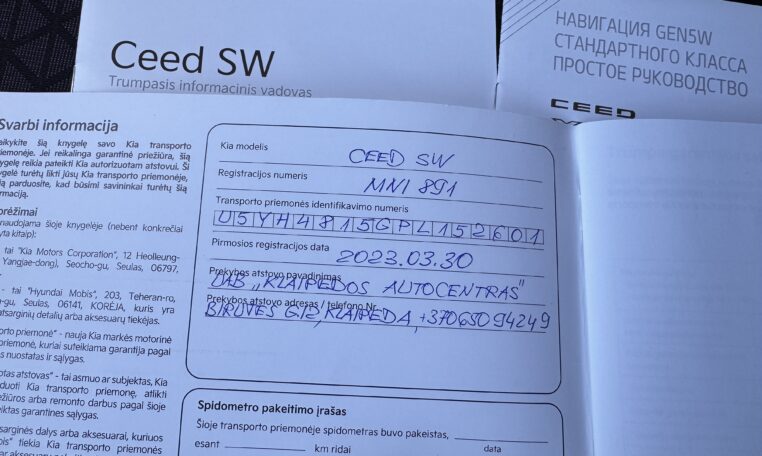 Ceed SW
Trumpasis informacinis vadovas
НАВИГАЦИЯ GEN5W
СТАНДАРТНОГО КЛАССА
ПРОСТОЕ РУКОВОДСТВО
CEED
Svarbi informacija
šią knygelę savo Kia transporto
priemonėje. Jei reikalinga garantinė priežiūra, šią
knygelę reikia pateikti Kia autorizuotam atstovui. Ši
turėtų likti jūsų Kia transporto priemonėje,
parduosite, kad būsimi savininkai turėtų šią
naudojama šioje knygelėje (nebent konkrečiai
kitaip):
tai "Kia Motors Corporation", 12 Heolleung-
Yangjae-dong), Seocho-gu, Seulas, 06797,
tai "Hyundai Mobis", 203, Teheran-ro,
Seulas, 06141, KORĖJA, kuris yra
atsarginių detalių arba aksesuarų tiekėjas.
priemonė" - nauja Kia markės motorinė
priemonė, kuriai suteikiama garantija pagal
nuostatas ir sąlygas.
atstovas" - tai asmuo ar subjektas, Kia
Kia transporto priemonę, atlikti
priežiūros arba remonto darbus pagal šioje
garantines sąlygas.
dalys arba aksesuarai, kuriuos
tiekia Kia transporto priemonės
Kia modelis CEED SW
Registracijos numeris MNI 891
Transporto priemonės identifikavimo numeris
U5YH4815GPL152601
Pirmosios registracijos data
2023.03.30
Prekybos atstovo pavadinimas
UAB „KLAIPĖDOS AUTOCENTRAS"
Prekybos atstovo adresas / telefono Nr.
KLAIPĖDA, +37065094249
Spidometro pakeitimo įrašas
Šioje transporto priemonėje spidometras buvo pakeistas,
esant km ridai data